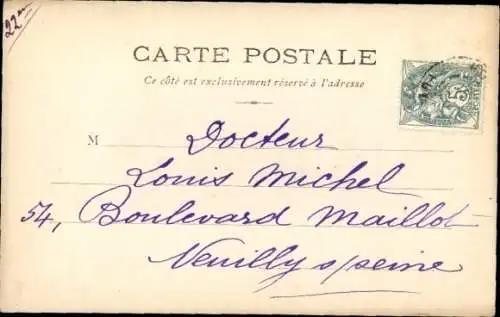 22
CARTE POSTALE
Ce côté est exclusivement réservé à l'adresse
M Docteur
Louis Michel
54, Boulevard Maillot
Neuilly s/seine